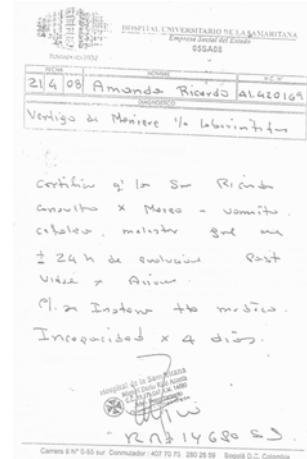 HOSPITAL UNIVERSITARIO DE LA SAMARITANA
Empresa Social del Estado
05SA08
FECHA NOMBRE H.C. Nº
21 4 08 Amanda Ricardo 41420169
DIAGNOSTICO
Vertigo de Meniere
certifico q' la Sra Ricardo
consulto x Mareo - vomito
cefalea, malestar gral
± 24 h de evolucion Post
Viaje x Avion
P/. se Instaura tto medico.
Incapacidad x 4 dias.
Hospital de la Samaritana
Carrera 8 Nº 0-55 sur Conmutador: 407 70 75 Bogotá D.C. Colombia